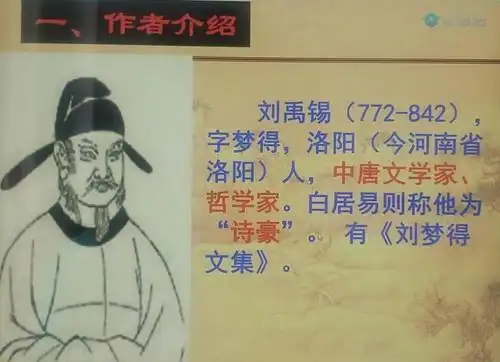 一、作者介绍
刘禹锡（772-842），
字梦得，洛阳（今河南省
洛阳）人，中唐文学家、
哲学家。白居易则称他为
“诗豪”。 有《刘梦得
文集》。